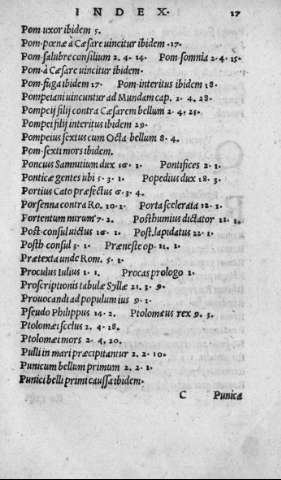 INDEX. 17
Pom·uxor ibidem 5.
Pom·pœna à Cæsare uincitur ibidem ·17·
Pom·salubre consilium 2. 4. 14. Pom·somnia 2. 4. 15.
Pom·à Cæsare uincitur ibidem·
Pom·fuga ibidem 17. Pom·interitus ibidem 18.
Pompeiani uincuntur ad Mundam cap. 2. 4. 28.
Pompeij filij contra Cæsarem bellum 2. 4. 25.
Pompei filij interitus ibidem 29.
Pompeius sextus cum Octa bellum 8. 4.
Pom·sexti mors ibidem.
Poncus Samnitium dux 16. 1. Pontifices 2. 1.
Ponticæ gentes ubi 5. 3. 1. Popedius dux 18. 3.
Portius Cato præfectus 6. 3. 4.
Porsenna contra Ro. 10. 1. Porta scelerata 12. 1.
Fortentum mirum 7. 2. Posthumius dictator 11. 1.
Post·consul uictus 16. 1. Post.lapidatus 22. 1.
Posth consul 5. 1. Præneste op. 11. 1.
Prætexta unde Rom. 5. 1.
Proculus Iulius 1. 1. Procas prologo 1.
Proscriptionis tabulæ Syllæ 21. 3. 9.
Prouocandi ad populum ius 9. 1.
Pseudo Philippus 14. 2. Ptolomæus rex 9. 3.
Ptolomæi scelus 2. 4. 18.
Ptolomæi mors 2. 4. 20.
Pulli in mari præcipitantur 2. 2. 10.
Punicum bellum primum 2. 2. 1.
Punici belli primi caussa ibidem·
C Punica